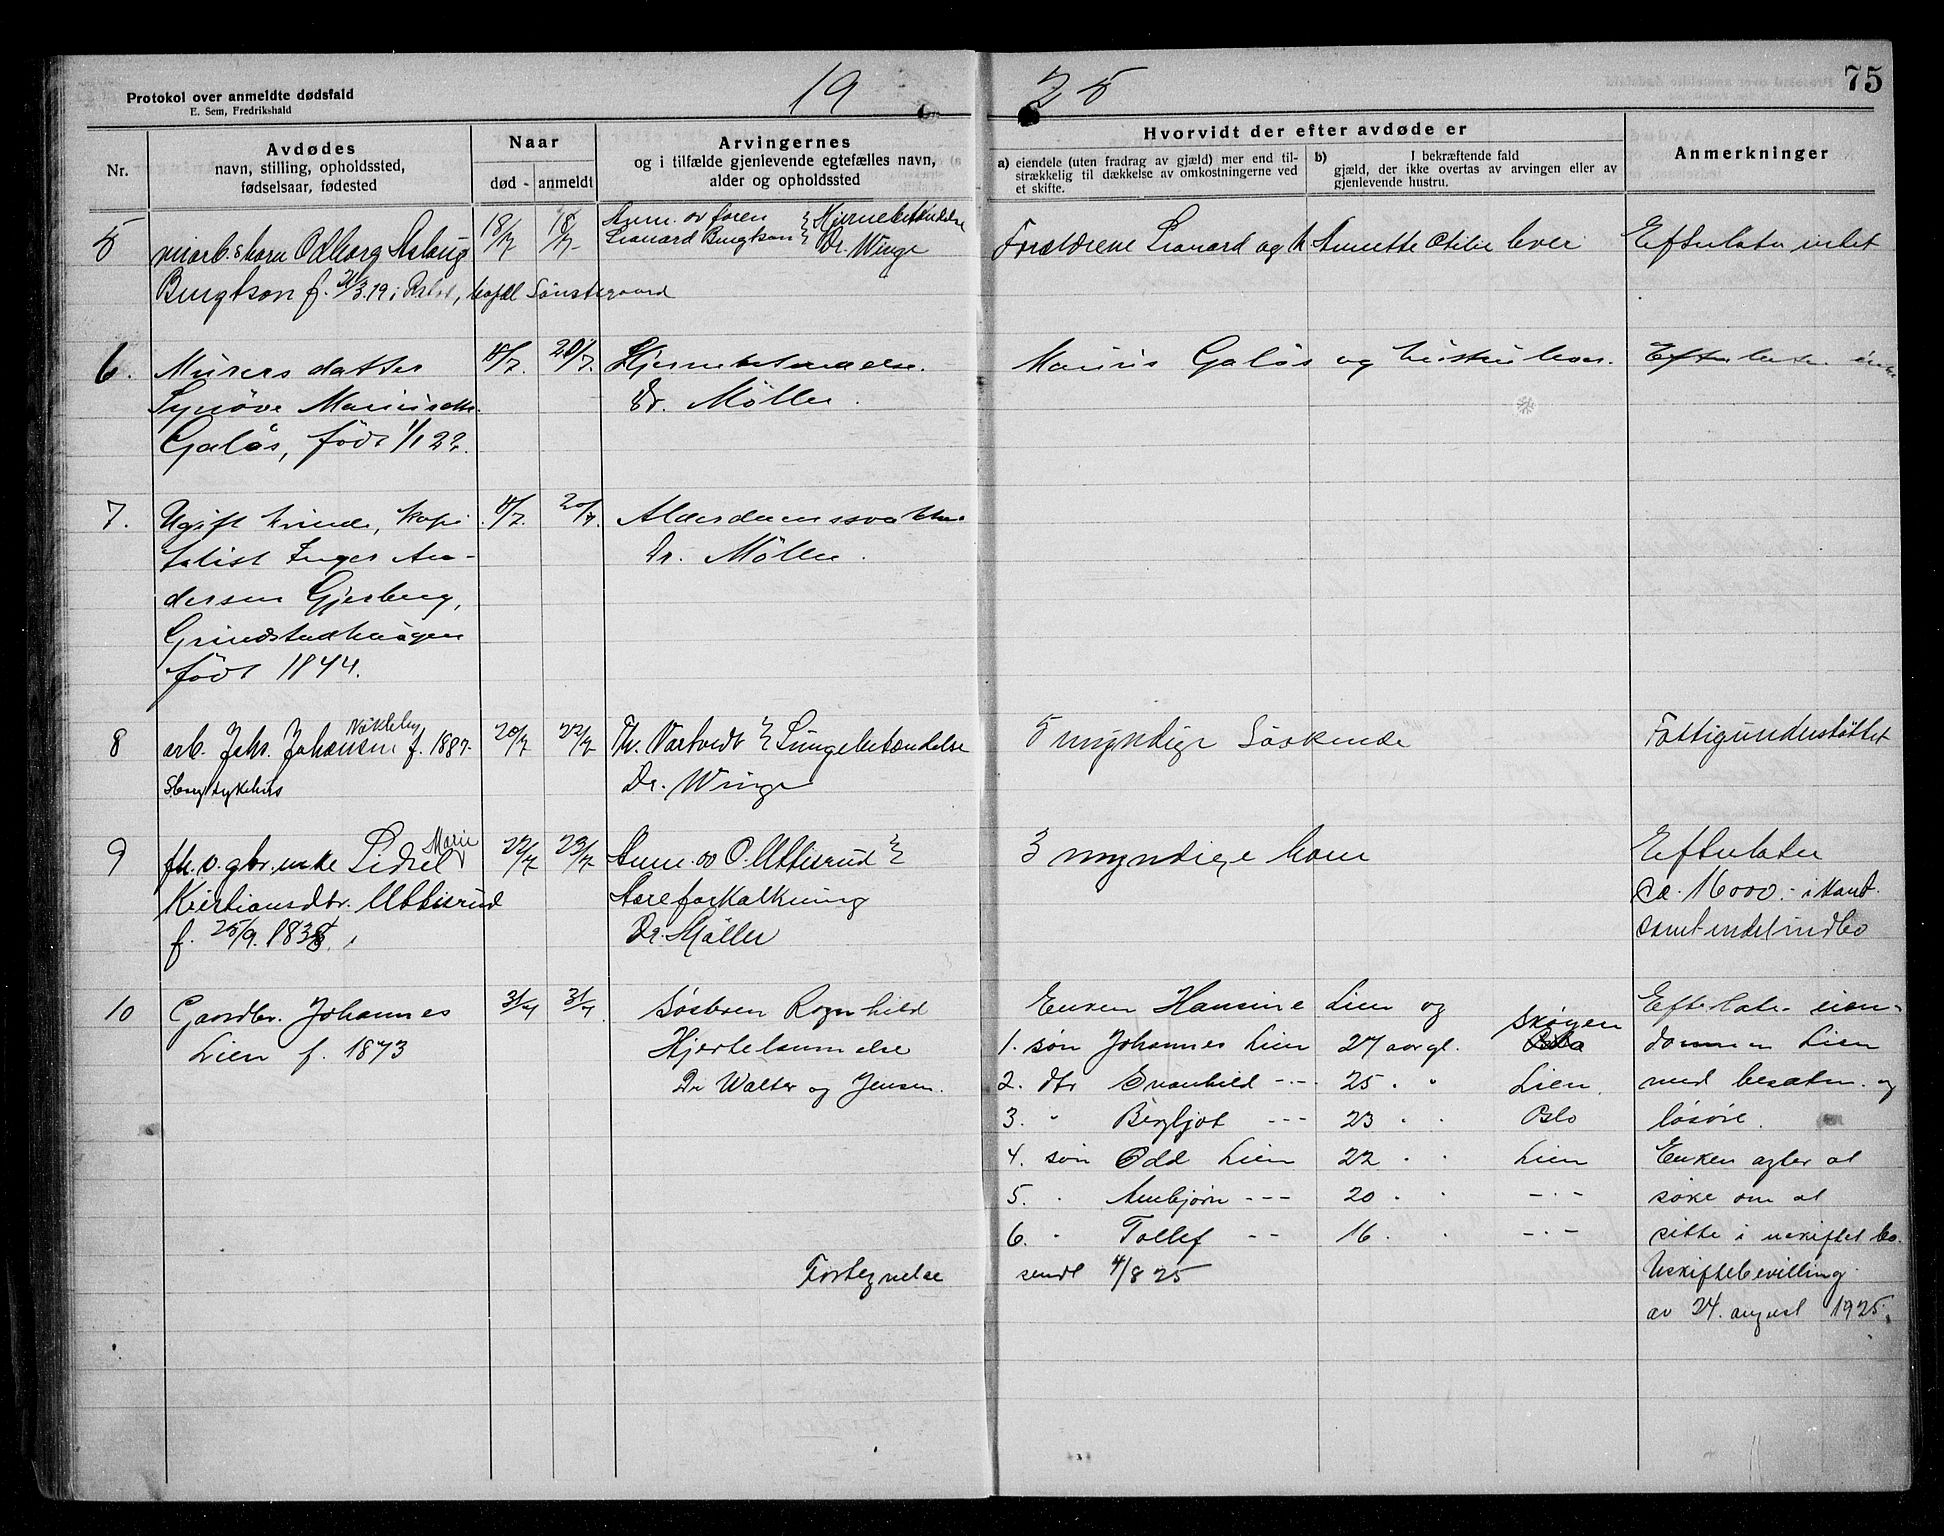 19 25
75
Protokol over anmeldte dødsfald
E. Sem, Fredrikshald
Nr.
Avdødes
navn, stilling, opholdssted,
fødselsaar, fødested
Naar
død - anmeldt
Arvingernes
og i tilfælde gjenlevende egtefælles navn,
alder og opholdssted
Hvorvidt der efter avdøde er
a) eiendele (uten fradrag av gjæld) mer end til-
strækkelig til dækkelse av omkostningerne ved
et skifte.
b) I bekræftende fald
gjæld, der ikke overtas av arvingen eller av
gjenlevende hustru.
Anmerkninger
5 barn Odborg Aslaug
Bengtson f. 21/3.19 i Oslo,
18/7 18/7
Anm. av faren
Leonard Bengtson
Hjernebetændelse
Dr. Winge
Forældrene Leonard og Annette Otilie lever
Efterlater intet
6. Murers datter
Synøve Mariusdtr.
Galås, født 1/1 22.
20/7
Hjernebetændelse.
Dr. Møller.
Marius Galås og hustru lever.
Efterlater
7. Ugift kvinde, kapi
talist Inger An-
dersen Gjerberg,
Grindstadhaugen
født 1844.
20/7.
Alderdomssvakhet
Dr. Møller.
8 arb. Johs. Johansen Nakkeby f. 1887.
20/7 22/7
Th. Vartvedt
Lungebetændelse
Dr. Winge
5 myndige Søskende
Fattigunderstøttet
9 fh. v. gbr. enke Sidsel Marie
Kristiansdtr. Uttisrud
f. 25/9. 1838.
22/7 23/7
Anm. av O. Uttisrud
Aareforkalkning
Dr. Møller
3 myndige barn
Efterlater
ca. 16000.- i kont.
samt endel indbo
10 Gaardbr. Johannes
Lien f. 1873
31/7 31/7
Søsteren Ragnhild
Hjertelammelse
Dr Walter og Jensen.
Enken Hansine Lien og
1. søn Johannes Lien 27 aar gl. Skøyen
2. dtr Svanhild -.- 25 " " Lien.
3. " Bergljot --- 23 " " Oslo
4. søn Odd Lien 22 " " Lien
5. " Arnbjørn --- 20 " " -.-
6. " Tollef -- 16 " " -.-
Fortegnelse sendt 4/8 25
Efterlater eien-
dommen Lien
med besætn. og
løsøre.
Enken agter at
søke om at
sitte i uskiftet bo.
Uskiftebevilling
av 24. august 1925.